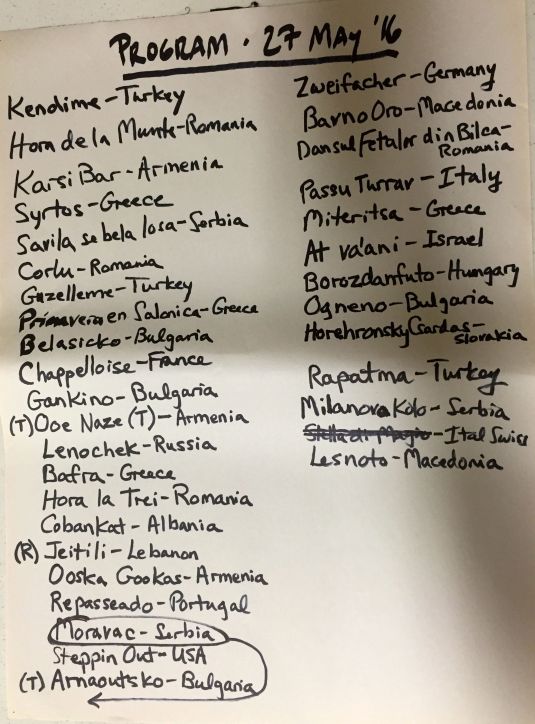 PROGRAM · 27 MAY '16
Kendime - Turkey
Hora de la Munte - Romania
Karsi Bar - Armenia
Syrtos - Greece
Savila se bela losa - Serbia
Corlu - Romania
Guzelleme - Turkey
Primavera en Salonica - Greece
Belasicko - Bulgaria
Chappelloise - France
Gankino - Bulgaria
(T) Ooe Naze (T) - Armenia
Lenochek - Russia
Bafra - Greece
Hora la Trei - Romania
Cobankat - Albania
(R) Jeitili - Lebanon
Ooska Gookas - Armenia
Repasseado - Portugal
Moravac - Serbia
Steppin Out - USA
(T) Arnaoutsko - Bulgaria
Zweifacher - Germany
Bavno Oro - Macedonia
Dansul Fetelor din Bilca -
Romania
Passu Turrar - Italy
Miteritsa - Greece
At va'ani - Israel
Borozdanfuto - Hungary
Ogneno - Bulgaria
Horehronsky Csardas -
Slovakia
Rapatma - Turkey
Milanova Kolo - Serbia
- Ital Swiss
Lesnoto - Macedonia